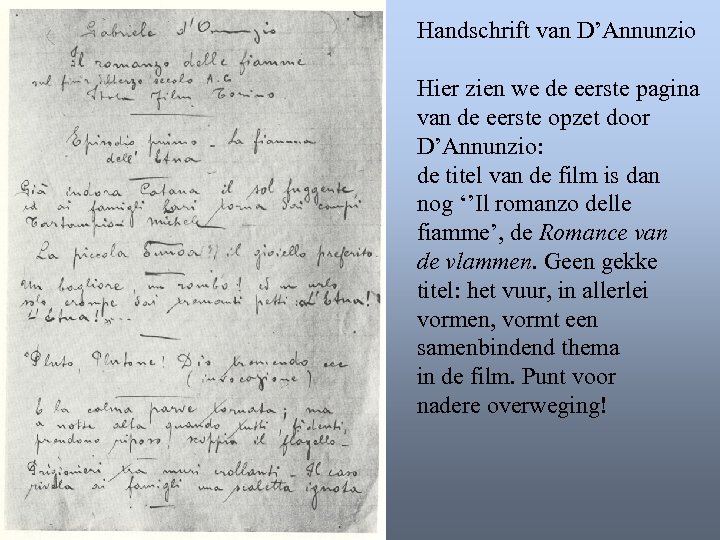 Gabriele d'Annunzio
Il romanzo delle fiamme
sul finir del terzo secolo A.C
Itala Film Torino
Episodio primo - La fiamma
dell' Etna
Già indora Catana il sol fuggente
ed ai famigli lari torna dai campi
La piccola il gioiello preferito.
Un bagliore, un rombo! ed un urlo
solo erompe dai tremanti petti: "L'Etna!
L'Etna!"...
"Pluto, Plutone! Dio tremendo ecc
(invocazione)
E la calma parve tornata; ma
a notte alta quando tutti, fidenti,
prendono riposo, scoppia il flagello -
Prigionieri tra muri crollanti - Il caso
rivela ai famigli una scaletta ignota
Handschrift van D’Annunzio
Hier zien we de eerste pagina
van de eerste opzet door
D’Annunzio:
de titel van de film is dan
nog ‘’Il romanzo delle
fiamme’, de Romance van
de vlammen. Geen gekke
titel: het vuur, in allerlei
vormen, vormt een
samenbindend thema
in de film. Punt voor
nadere overweging!